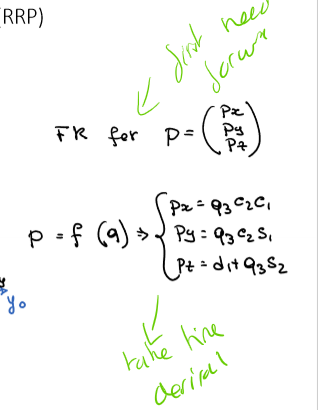 (RRP)
first need
forwar
FK for p = (px
py
pz)
p = f (q) ⇒ { px = q3 c2 c1
py = q3 c2 s1
pz = d1 + q3 s2
y0
take time
deriva